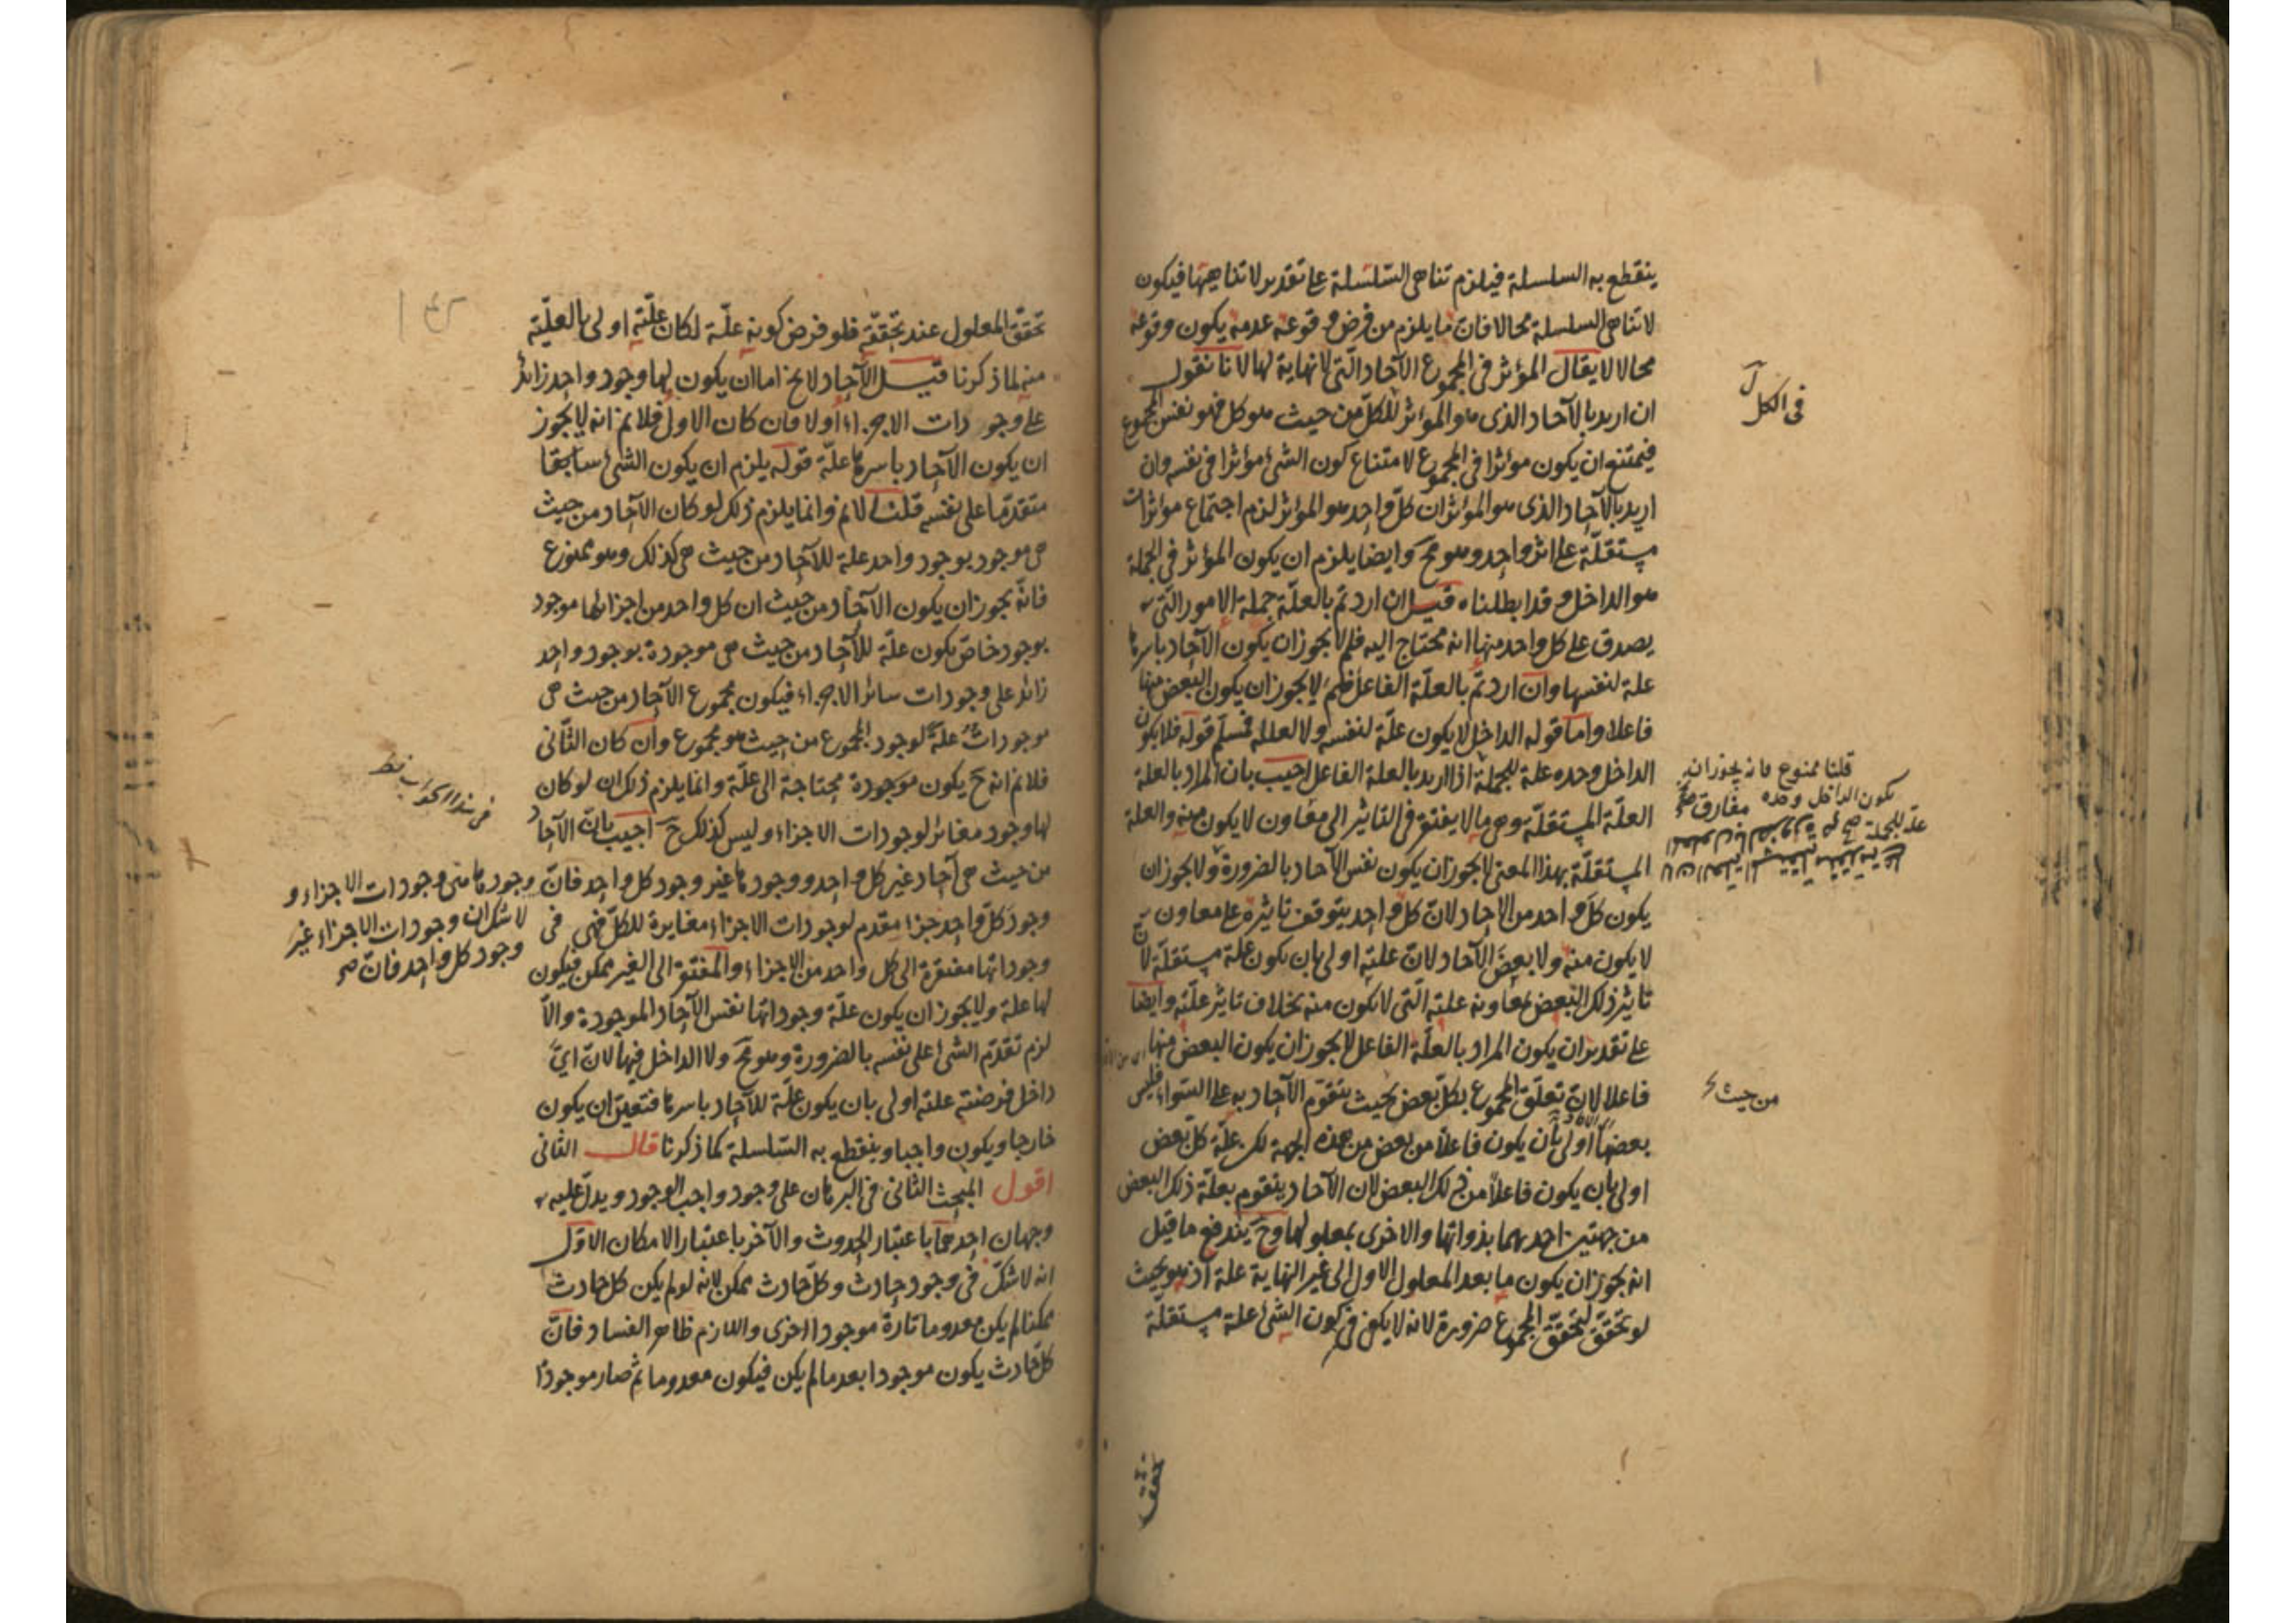 ينقطع به السلسلة فيلزم تناهى السلسلة على تقدير لا تناهيها فيكون
لا تناهى السلسلة محالا فان ما يلزم من فرض وقوعه عدمه يكون وقوعه
محالا لا يقال المؤثر فى المجموع الآحاد التى لا نهاية لها لانا نقول
ان اريد بالآحاد الذى هو المؤثر للكل من حيث هو كل فهو نفس المجموع
فيمتنع ان يكون مؤثرا فى المجموع لامتناع كون الشئ مؤثرا فى نفسه وان
اريد بالآحاد الذى هو المؤثر ان كل واحد هو المؤثر لزم اجتماع مؤثرات
مستقلة على اثر واحد وهو مح وايضا يلزم ان يكون المؤثر فى الجملة
هو الداخل وقد ابطلناه قيل ان اردتم بالعلة جملة الامور التى
يصدق على كل واحد منها انه محتاج اليه فلم لا يجوز ان يكون الآحاد باسرها
علة لنفسها وان اردتم بالعلة الفاعل فلم لا يجوز ان يكون البعض منها
فاعلا واما قوله الداخل لا يكون علة لنفسه ولا لعلله فمسلم قوله فلا يكون
الداخل وحده علة للجملة اذا اريد بالعلة الفاعل اجيب بان المراد بالعلة
العلة المستقلة وهى ما لا يفتقر فى التاثير الى معاون لا يكون منه والعلة
المستقلة بهذا المعنى لا يجوز ان يكون نفس الآحاد بالضرورة ولا يجوز ان
يكون كل واحد من الآحاد لان كل واحد يتوقف تاثيره على معاون
لا يكون منه ولا بعض الآحاد لان علته اولى بان يكون علة مستقلة لان
تاثير ذلك البعض بمعاونة علته التى لا يكون منه بخلاف تاثير علته وايضا
على تقدير ان يكون المراد بالعلة الفاعل لا يجوز ان يكون البعض منها
فاعلا لان تعلق المجموع بكل بعض بحيث يتقوم الآحاد به على السواء فليس
بعضها اولى بان يكون فاعلا من بعض من هذه الجهة لكن علة كل بعض
اولى بان يكون فاعلا من ذلك البعض لان الآحاد يتقوم بعلة ذلك البعض
من جهتين احديهما بذواتها والاخرى بمعلولها وح يندفع ما قيل
انه يجوز ان يكون ما بعد المعلول الاول الى غير النهاية علة اذ هو بحيث
لو تحقق لتحقق المجموع ضرورة لانه لا يكفى فى كون الشئ علة مستقلة
فى الكل
قلنا ممنوع فانه يجوز ان
يكون الداخل وحده
علة للجملة
من حيث
تحقق
تحقق المعلول عند تحققه فلو فرض كونه علة لكان علته اولى بالعلية
منه لما ذكرنا قيل الآحاد لا يخ اما ان يكون لها وجود واحد زائد
على وجودات الاجزاء او لا فان كان الاول فلا نم انه لا يجوز
ان يكون الآحاد باسرها علة قوله يلزم ان يكون الشئ سابقا
متقدما على نفسه قلنا لا نم وانما يلزم ذلك لو كان الآحاد من حيث
هى موجود بوجود واحد علة للآحاد من حيث هى كذلك وهو ممنوع
فانه يجوز ان يكون الآحاد من حيث ان كل واحد من اجزائها موجود
بوجود خاص يكون علة للآحاد من حيث هى موجودة بوجود واحد
زائد على وجودات سائر الاجزاء فيكون مجموع الآحاد من حيث هى
موجودات علة لوجود المجموع من حيث هو مجموع وان كان الثانى
فلا نم انه ح يكون موجودة محتاجة الى علة وانما يلزم ذلك ان لو كان
لها وجود مغائر لوجودات الاجزاء وليس كذلك ح اجيب بان الآحاد
من حيث هى آحاد غير كل واحد ووجودها غير وجود كل واحد فان
وجود كل واحد جزء مقدم لوجودات الاجزاء مغايرة للكل فهى فى
وجوداتها مفتقرة الى كل واحد من الاجزاء والمفتقر الى الغير ممكن فيكون
لها علة ولا يجوز ان يكون علة وجوداتها نفس الآحاد الموجودة والا
لزم تقدم الشئ على نفسه بالضرورة وهو مح ولا الداخل فيها لان اى
داخل فرضته علته اولى بان يكون علة للآحاد باسرها فتعين ان يكون
خارجا ويكون واجبا وينقطع به السلسلة كما ذكرنا قال الثانى
اقول المبحث الثانى فى البرهان على وجود واجب الوجود ويدل عليه
وجهان احدهما باعتبار الحدوث والآخر باعتبار الامكان الاول
انه لا شك فى وجود حادث وكل حادث ممكن لانه لو لم يكن كل حادث
ممكنا لم يكن معدوما تارة موجودا اخرى واللازم ظاهر الفساد فان
كل حادث يكون موجودا بعد ما لم يكن فيكون معدوما ثم صار موجودا
فى هذا الجواب نظر
وجودها هى وجودات الاجزاء و
لا شك ان وجودات الاجزاء غير
وجود كل واحد فان صح